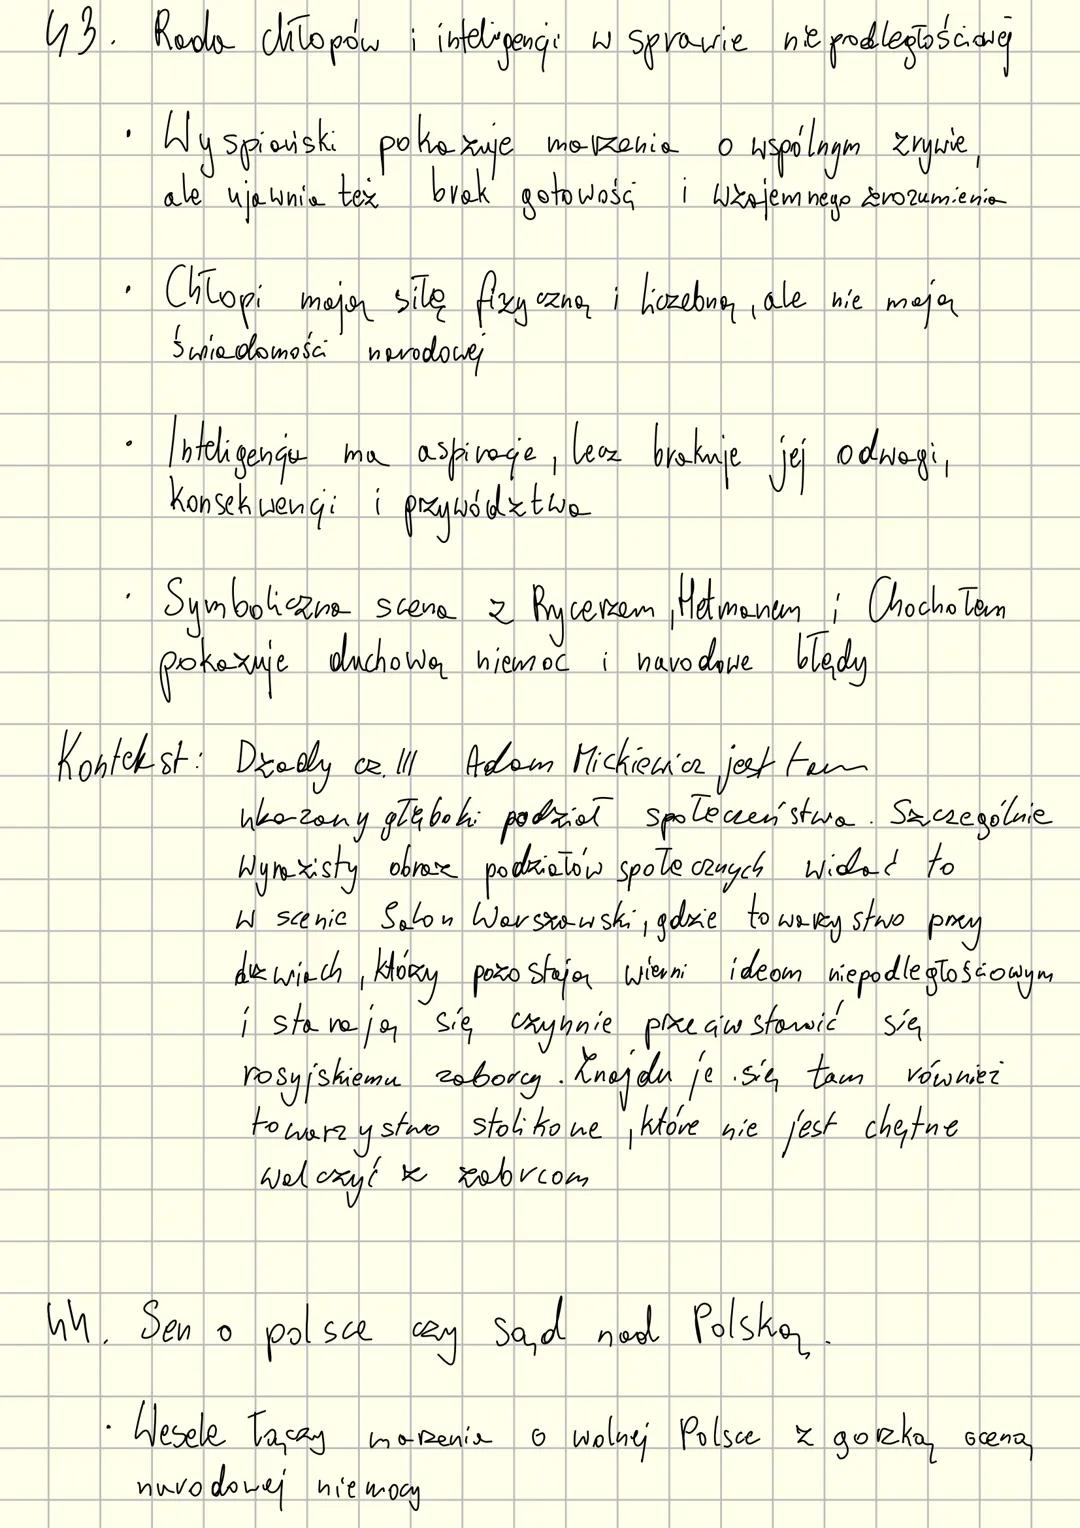 43. Rada chłopów i inteligencji w sprawie niepodległościowej
· Wyspiański pokazuje marzenia o wspólnym zrywie,
ale ujawnia też brak gotowości i wzajemnego zrozumienia
· Chłopi mają siłę fizyczną i liczebną, ale nie mają
świadomości narodowej
· Inteligencja ma aspiracje, lecz brakuje jej odwagi,
konsekwencji i przywództwa
· Symboliczna scena z Rycerzem, Hetmanem i Chochołem
pokazuje duchową niemoc i narodowe błędy
Kontekst: Dziady cz. III Adam Mickiewicz jest tam
ukazany głęboki podział społeczeństwa. Szczególnie
wyrazisty obraz podziałów społecznych widać to
w scenie Salon Warszawski, gdzie towarzystwo przy
drzwiach, którzy pozostają wierni ideom niepodległościowym
i starają się czynnie przeciwstawić się
rosyjskiemu zaborcy. Znajduje się tam również
towarzystwo stolikowe, które nie jest chętne
walczyć z zaborcom
44. Sen o polsce czy sąd nad Polską.
· Wesele łączy marzenia o wolnej Polsce z gorzką oceną
narodowej niemocy